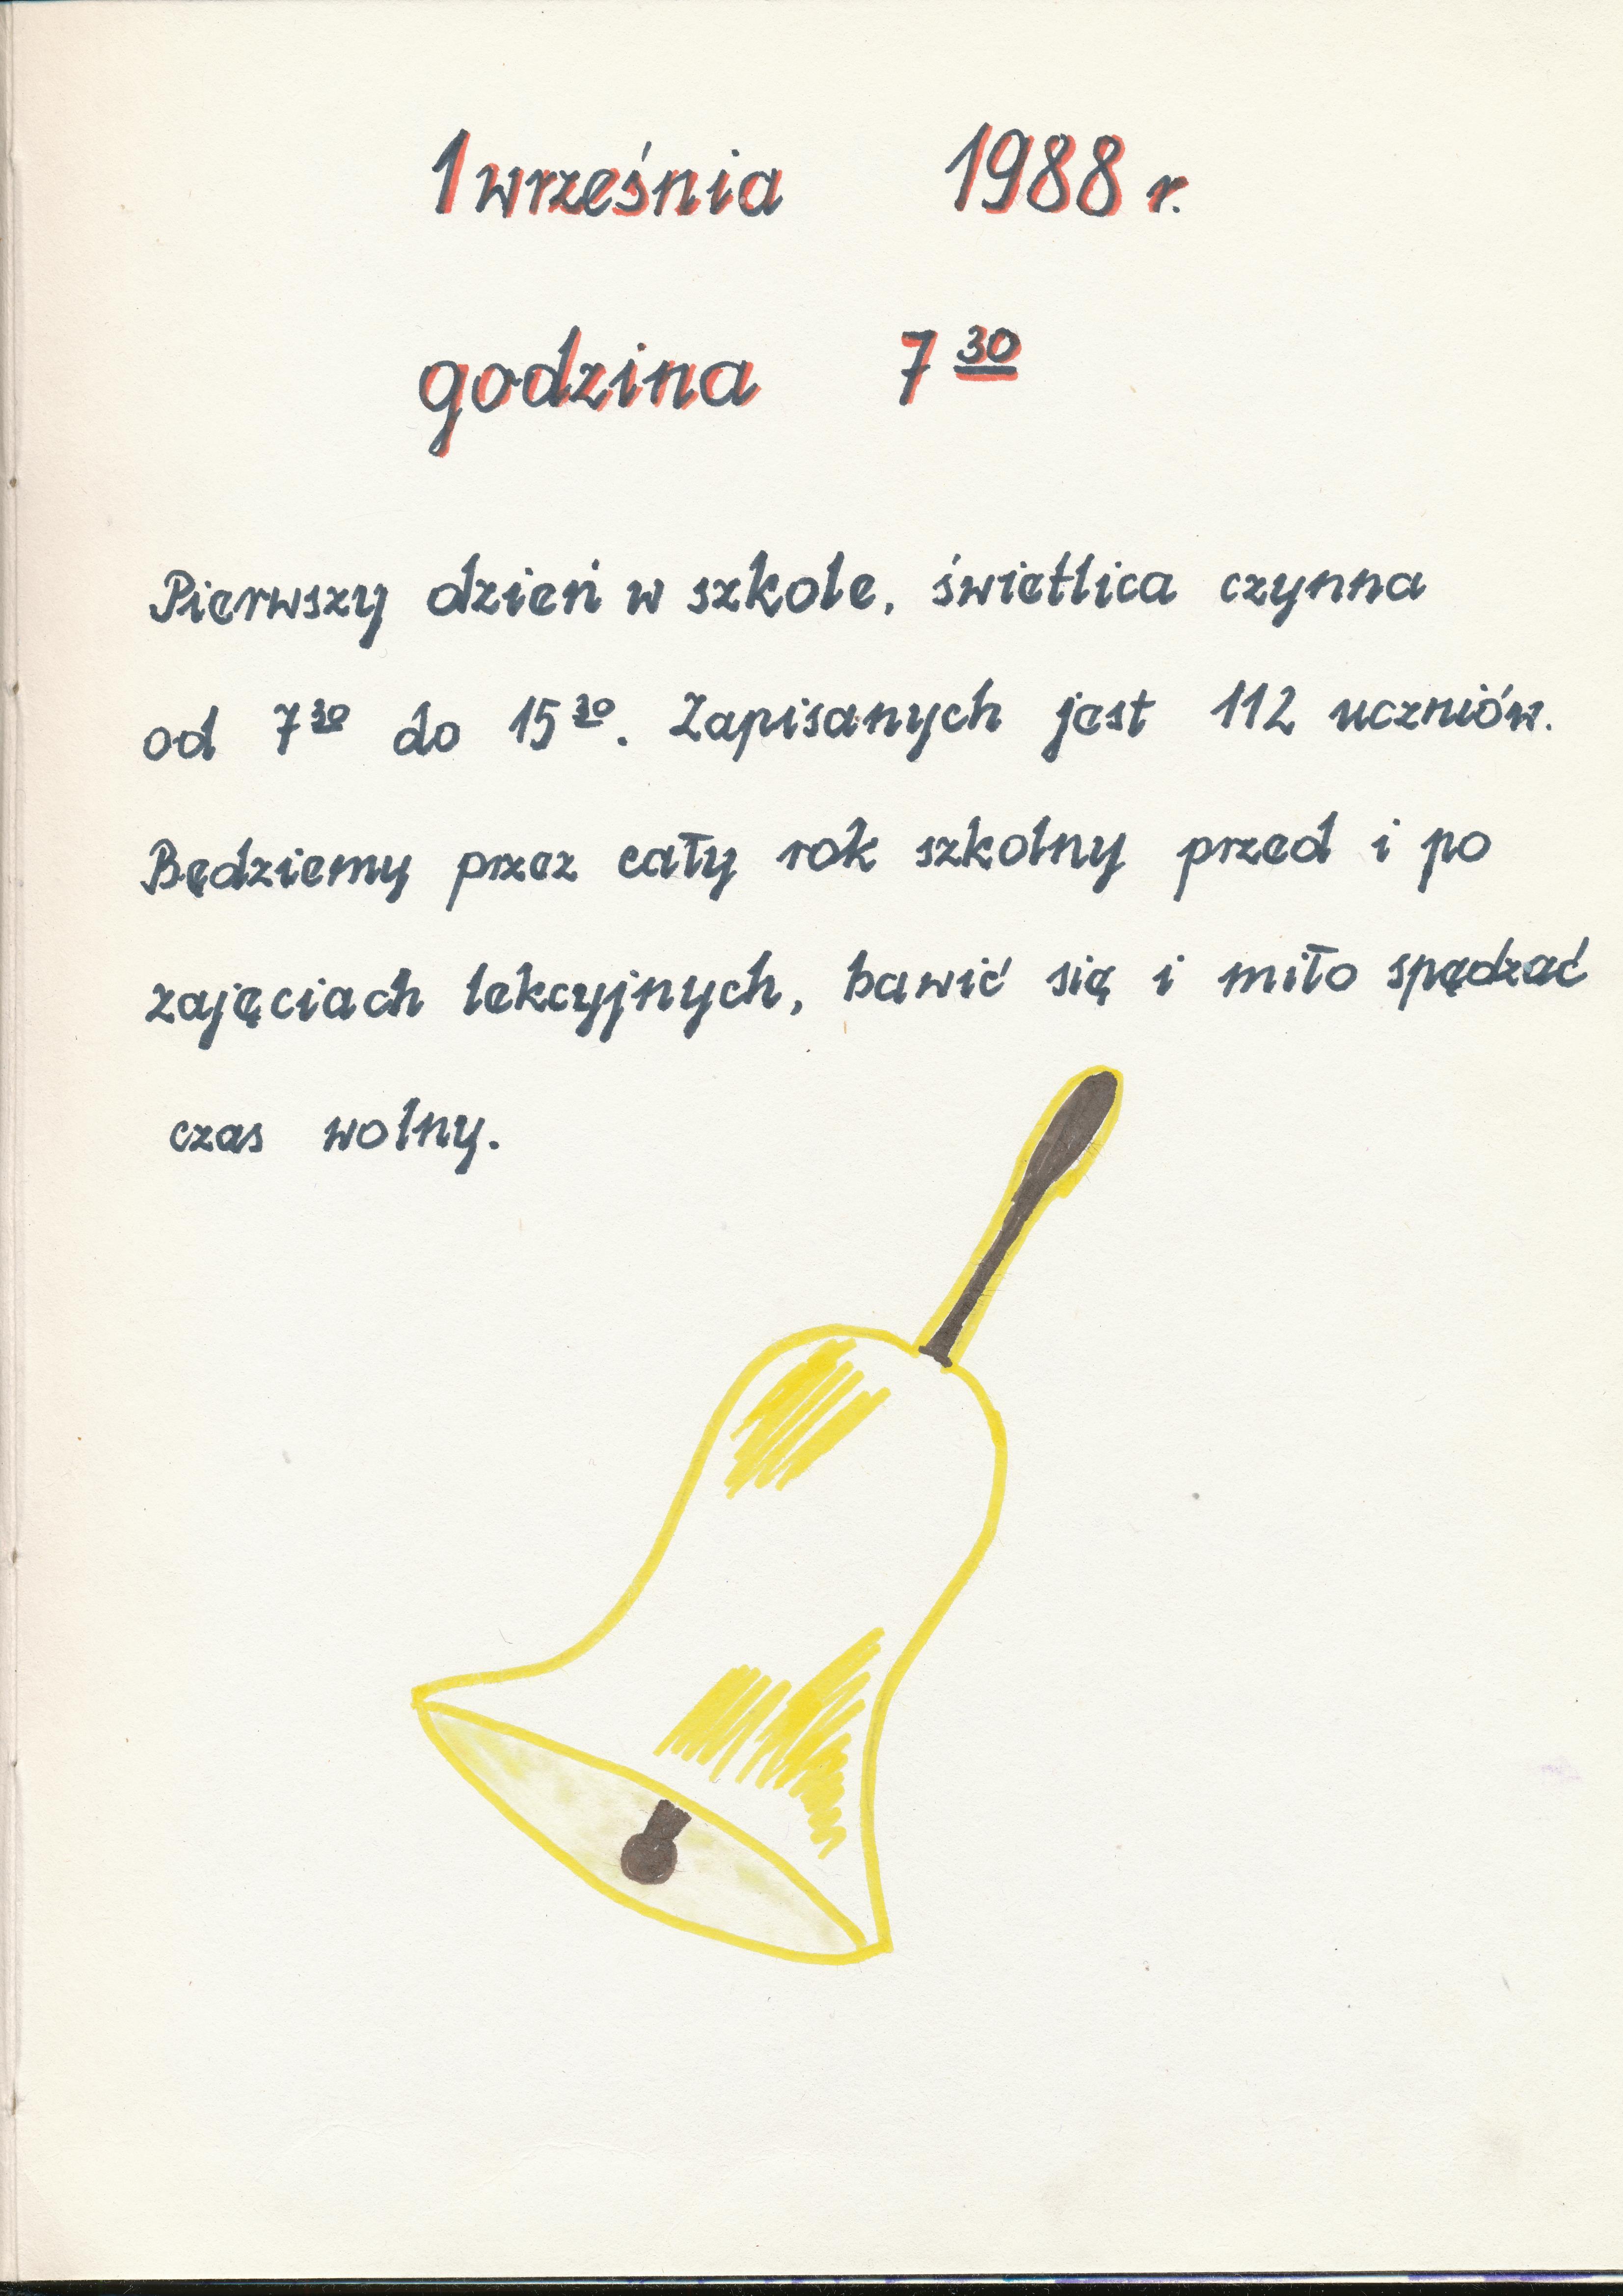 1 września 1988 r.
godzina 7³⁰
Pierwszy dzień w szkole, świetlica czynna
od 7³⁰ do 15³⁰. Zapisanych jest 112 uczniów.
Będziemy przez cały rok szkolny przed i po
zajęciach lekcyjnych, bawić się i miło spędzać
czas wolny.